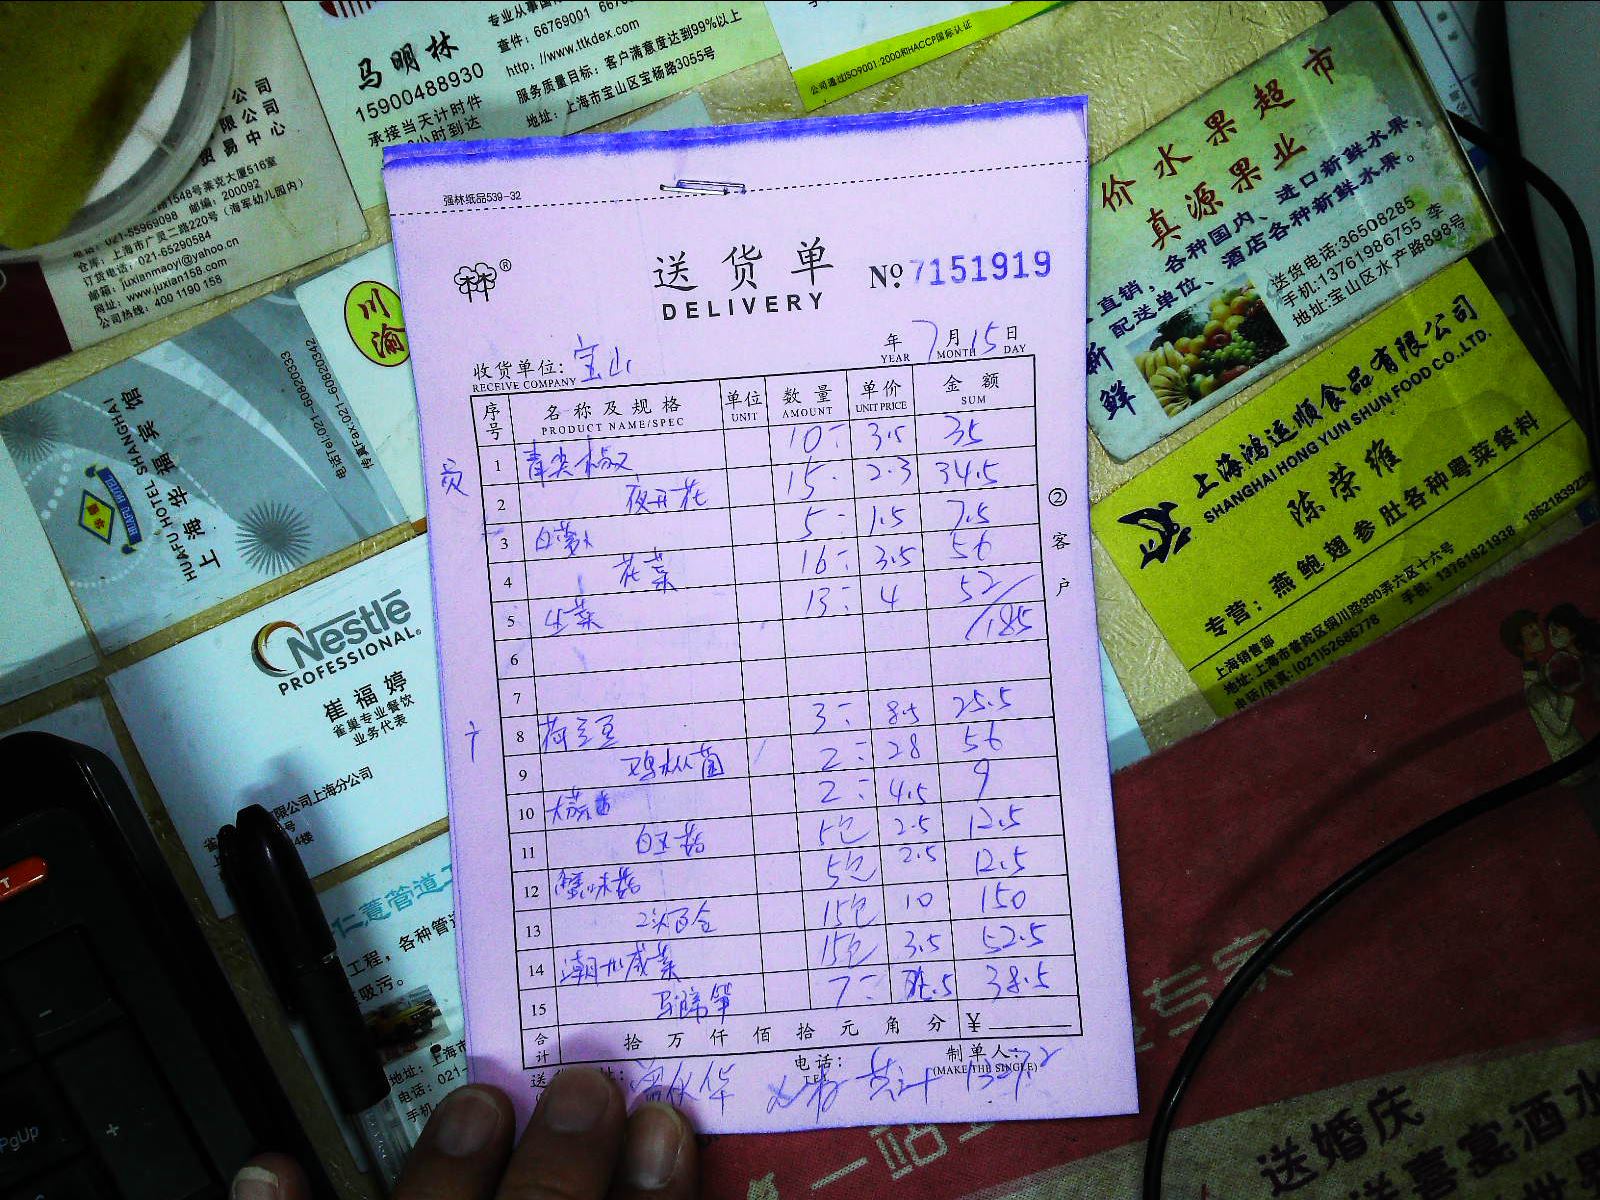 强林纸品539-32
送货单
DELIVERY
№ 7151919
年 7月15日
YEAR MONTH DAY
收货单位: 宝山
RECEIVE COMPANY
序号 名称及规格 单位 数量 单价 金额
PRODUCT NAME/SPEC UNIT AMOUNT UNIT PRICE SUM
1 青尖椒 10 3.5 35
2 夜开花 15 2.3 34.5
3 白萝卜 5 1.5 7.5
4 花菜 16 3.5 56
5 生菜 13 4 52
6 185
7
8 荷兰豆 3 8.5 25.5
9 鸡枞菌 2 28 56
10 2 4.5 9
11 白玉菇 5包 2.5 12.5
12 蟹味菇 5包 2.5 12.5
13 百合 15包 10 150
14 潮州咸菜 15包 3.5 52.5
15 马蹄笋 7 5.5 38.5
合计 拾 万 仟 佰 拾 元 角 分 ¥
电话:
制单人:
(MAKE THE SINGLE)
② 客户
马明林
15900488930
承接当天计时件
小时到达
查件: 66769001
http: //www.ttkdex.com
服务质量目标: 客户满意度达到99%以上
地址: 上海市宝山区宝杨路3055号
公司通过ISO9001:2000和HACCP国际认证
公司
限公司
贸易中心
路1548号莱克大厦516室
021-55969098 邮编: 200092
仓库: 上海市广灵二路220号 (海军幼儿园内)
订货电话: 021-65290584
邮箱: juxianmaoyi@yahoo.cn
网址: www.juxian158.com
公司热线: 400 1190 158
川渝
上海华福宾馆
HUAFU HOTEL SHANGHAI
HUAFU HOTEL
电话Tel:021-608203333
传真Fax:021-60820342
Nestlé
PROFESSIONAL®
崔福婷
雀巢专业餐饮
业务代表
限公司上海分公司
仁薏管道工
工程, 各种管道
吸污。
地址: 上海市
电话: 021-
手机
价水果超市
真源果业
直销, 各种国内、进口新鲜水果,
配送单位、酒店各种新鲜水果。
新鲜
送货电话:36508285
手机:13761986755 李
地址:宝山区水产路898号
上海鸿运顺食品有限公司
SHANGHAI HONG YUN SHUN FOOD CO.,LTD.
陈荣维
专营: 燕鲍翅参肚各种粤菜餐料
上海销售部
地址: 上海市普陀区铜川路990弄六区十六号
电话/传真: (021)52686778
手机: 13761821938 18621839238
一站
专家
送婚庆
喜宴酒水
PgUp